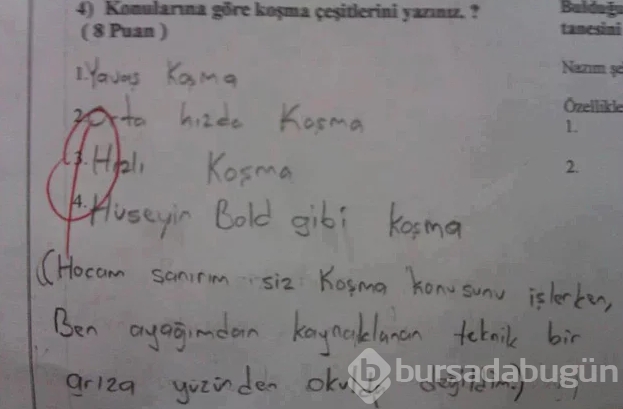 4) Konularına göre koşma çeşitlerini yazınız. ?
( 8 Puan )
1. Yavaş Koşma
2. Orta hızda Koşma
3. Hızlı Koşma
4. Hüseyin Bold gibi koşma
(Hocam sanırım siz Koşma konusunu işlerken,
Ben ayağımdan kaynaklanan teknik bir
arıza yüzünden okulda değildim.) :)
bursadabugün
tanesini
Nazım şe
Özellikle
1.
2.